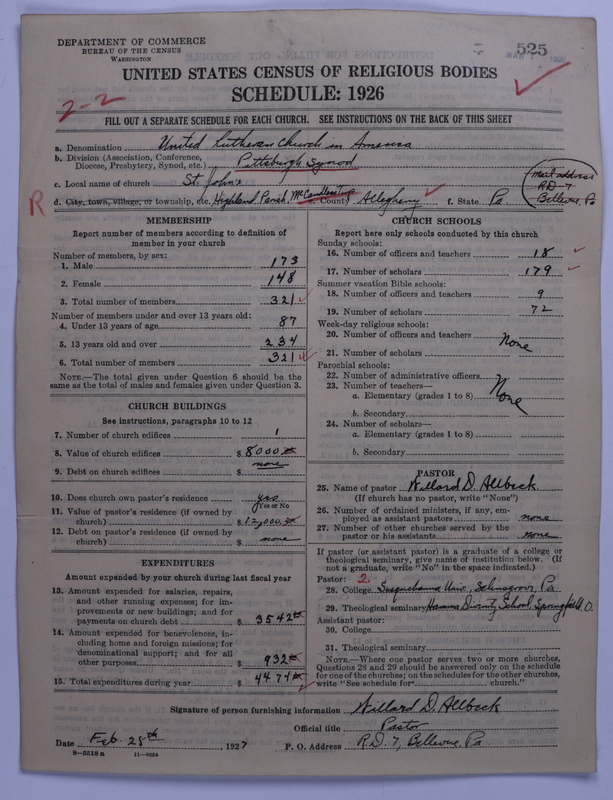 DEPARTMENT OF COMMERCE
BUREAU OF THE CENSUS
WASHINGTON
525
UNITED STATES CENSUS OF RELIGIOUS BODIES
SCHEDULE: 1926
2-2
FILL OUT A SEPARATE SCHEDULE FOR EACH CHURCH. SEE INSTRUCTIONS ON THE BACK OF THIS SHEET
a. Denomination United Lutheran Church in America
b. Division (Association, Conference, Diocese, Presbytery, Synod, etc.) Pittsburgh Synod
c. Local name of church St. John's
R d. City, town, village, or township, etc. Highland Parish, McCandless T e. County Allegheny f. State Pa
Mail address
R.D-7
Bellevue, Pa
MEMBERSHIP
Report number of members according to definition of member in your church
Number of members, by sex:
1. Male 173
2. Female 148
3. Total number of members 321
Number of members under and over 13 years old:
4. Under 13 years of age 87
5. 13 years old and over 234
6. Total number of members 321
NOTE.—The total given under Question 6 should be the same as the total of males and females given under Question 3.
CHURCH BUILDINGS
See instructions, paragraphs 10 to 12
7. Number of church edifices 1
8. Value of church edifices $ 8000
9. Debt on church edifices $ none
10. Does church own pastor's residence yes
Yes or No
11. Value of pastor's residence (if owned by church) $ 12,000
12. Debt on pastor's residence (if owned by church) $ none
EXPENDITURES
Amount expended by your church during last fiscal year
13. Amount expended for salaries, repairs, and other running expenses; for improvements or new buildings; and for payments on church debt $ 3542
14. Amount expended for benevolences, including home and foreign missions; for denominational support; and for all other purposes $ 932
15. Total expenditures during year $ 4474
CHURCH SCHOOLS
Report here only schools conducted by this church
Sunday schools:
16. Number of officers and teachers 18
17. Number of scholars 179
Summer vacation Bible schools:
18. Number of officers and teachers 9
19. Number of scholars 72
Week-day religious schools:
20. Number of officers and teachers None
21. Number of scholars
Parochial schools:
22. Number of administrative officers
23. Number of teachers— None
a. Elementary (grades 1 to 8)
b. Secondary
24. Number of scholars—
a. Elementary (grades 1 to 8)
b. Secondary
PASTOR
25. Name of pastor Willard D. Allbeck
(If church has no pastor, write "None")
26. Number of ordained ministers, if any, employed as assistant pastors none
27. Number of other churches served by the pastor or his assistants none
If pastor (or assistant pastor) is a graduate of a college or theological seminary, give name of institution below. (If not a graduate, write "No" in the space indicated.)
Pastor: 2
28. College Susquehanna Univ., Selinsgrove, Pa
29. Theological seminary Hamma Divinity School, Springfield, O.
Assistant pastor:
30. College
31. Theological seminary
NOTE.—Where one pastor serves two or more churches, Questions 28 and 29 should be answered only on the schedule for one of the churches; on the schedules for the other churches, write "See schedule for church."
Signature of person furnishing information Willard D. Allbeck
Official title Pastor
Date Feb. 28th, 1927 P. O. Address R.D. 7, Bellevue, Pa
8—5518 a 11—9354